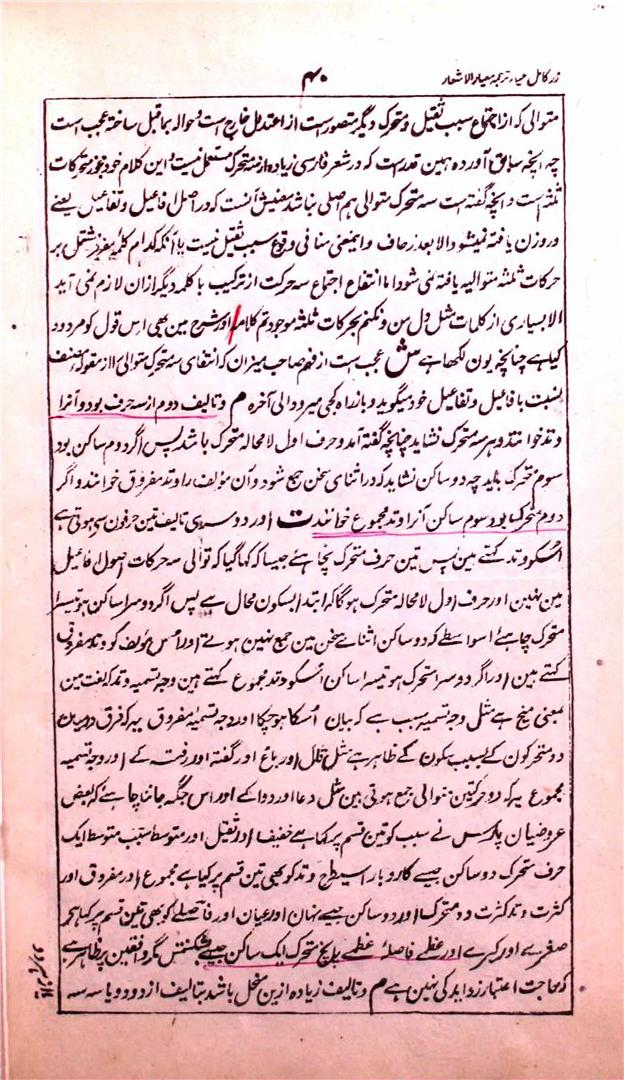 زر کامل عیار ترجمہ معیار الاشعار
۴۰
متوالی کہ از اجتماع سبب ثقیل و متحرک دیگر متصور است از اعتدال خارج است و حوالہ بماقبل ساختہ عجب است
چہ انچہ سابق آوردہ ہمین قدر است کہ در شعر فارسی زیادہ از سہ متحرک مستعمل نیست و این کلام خود مجوز متحرکات
ثلثہ است و انچہ گفتہ است سہ متحرک متوالی ہم اصلی نباشد معنیش آنست کہ در اصل افاعیل و تفاعیل یعنے
در وزن یافتہ نمیشود الا بعد زحاف و اینمعنی منافی وقوع سبب ثقیل نیست یا آنکہ کدام کلمۂ مشتمل بر
حرکات ثلثہ متوالیہ یافتہ نمی شود اما انتفاع اجتماع سہ حرکت از ترکیب با کلمہ دیگر ازان لازم نمی آید
الا بسیاری از کلمات مثل دل من و نکنم بحرکات ثلثہ موجود تم کلامہ اور شرح مین بھی اس قول کو مردود
کیا ہے چنانچہ یون لکھا ہے ش عجب است از فہم صاحب میزان کہ انتفای سہ متحرک متوالی را از مقولہ مصنف
بنسبت با فاعیل و تفاعیل خود میگوید و باز راہ کجی میرود الی آخرہ م و تالیف دوم از سہ حرف بود و آنرا
وتد خوانند و ہر سہ متحرک نشاید چنانچہ گفتہ آمد و حرف اول لا محالہ متحرک باشد پس اگر دوم ساکن بود
سوم متحرک باید چہ دو ساکن نشاید کہ در اثنای سخن جمع شود و آن مؤلف را وتد مفروق خوانند و اگر
دوم متحرک بود سوم ساکن آنرا وتد مجموع خوانند ت اور دوسری تالیف تین حرفون سی ہوتی ہے
اُسکو وتد کہتے ہین پس تین حرف متحرک نچاہئے جیسا کہ کہا گیا کہ توالی سہ حرکات اصول افاعیل
مین نہین اور حرف اول لا محالہ متحرک ہوگا کہ ابتدا بسکون محال ہے پس اگر دوسرا ساکن ہو تیسرا
متحرک چاہئے اسواسطے کہ دو ساکن اثنائے سخن مین جمع نہین ہوتے اور اُس مؤلف کو وتد مفروق
کہتے ہین اور اگر دوسرا متحرک ہو تیسرا ساکن اُسکو وتد مجموع کہتے ہین وجہ تسمیہ وتد کہ لغت مین
بمعنی میخ ہے مثل وجہ تسمیہ سبب ہے کہ بیان اُسکا ہو چکا اور وجہ تسمیۂ مفروق یہ کہ فرق درمیان
دو متحرکون کے بسبب سکون کے ظاہر ہے مثل قال اور باغ اور گفتہ اور رفتہ کے اور وجہ تسمیہ
مجموع یہ کہ دو حرکتین متوالی جمع ہوتی ہین مثل دعا اور دوا کے اور اس جگہ جاننا چاہئے کہ بعض
عروضیان پارس نے سبب کو تین قسم پر کہا ہے خفیف اور ثقیل اور متوسط سبب متوسط ایک
حرف متحرک دو ساکن جیسے کار و بار اسیطرح وتد کو بھی تین قسم پر کیا ہے مجموع اور مفروق اور
کثرت وتد کثرت دو متحرک اور دو ساکن جیسے نہان اور عیان اور فاصلے کو بھی تین قسم پر کیا ہے
صغرے اور کبرے اور عظمے فاصلۂ عظمے پانچ متحرک ایک ساکن جیسے بشکنمش مگر واقفین پر ظاہر ہے
کہ حاجت اعتبار زوائد کی نہین ہے م و تالیف زیادہ ازین منحل باشد بتالیف از دو دو یا سہ سہ